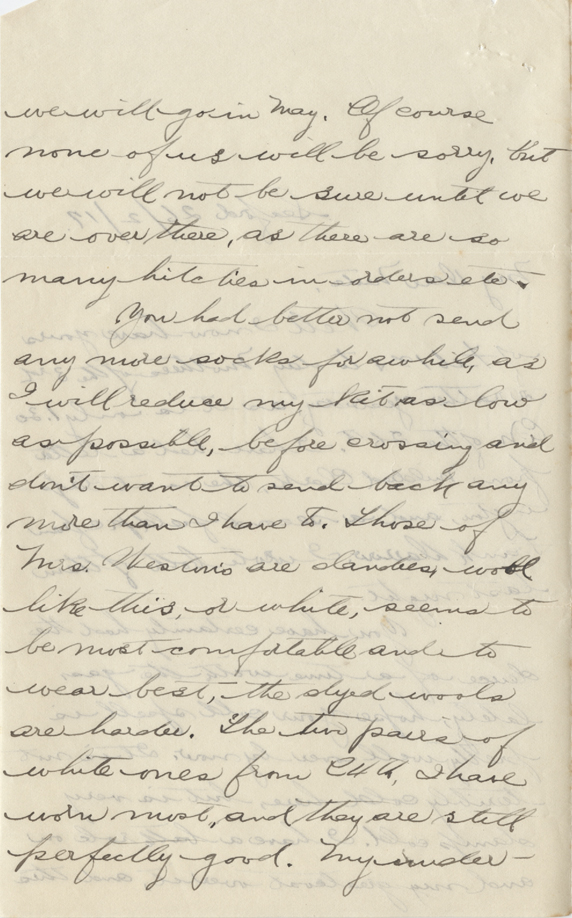 we will go in May. Of course
none of us will be sorry, but
we will not be sure until we
are over there, as there are so
many hitches in orders etc.
You had better not send
any more socks for awhile, as
I will reduce my kit as low
as possible, before crossing and
don't want to send back any
more than I have to. Those of
Mrs. Weston's are dandies, wool
like this, or white, seems to
be most comfortable and to
wear best, – the dyed wools
are harder. The two pairs of
white ones from I have
worn most, and they are still
perfectly good. My under-